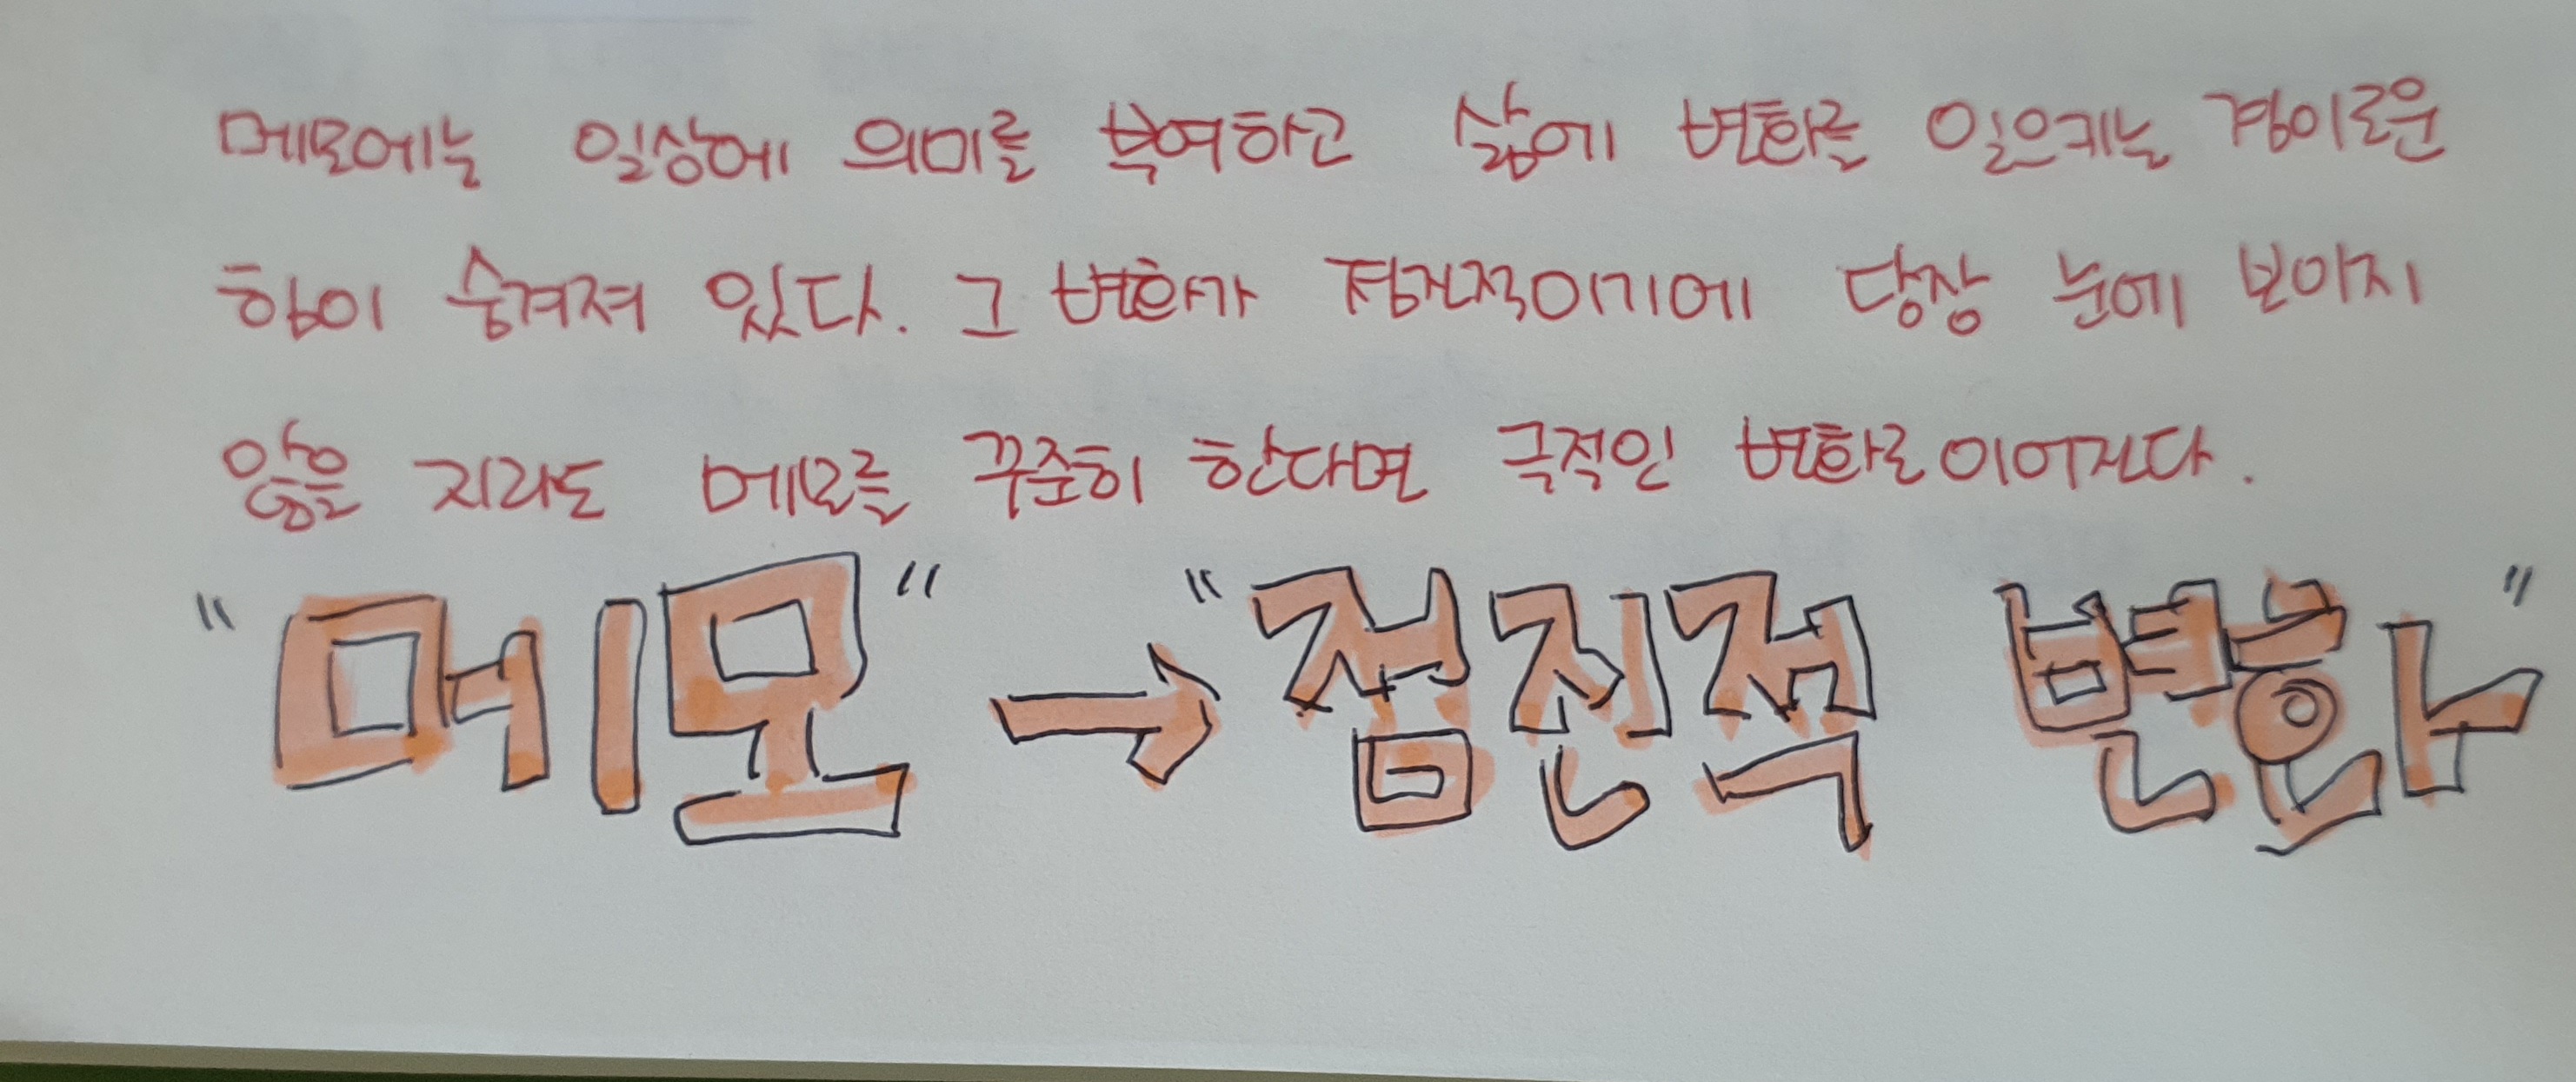 메모에는 일상에 의미를 부여하고 삶에 변화를 일으키는 경이로운
힘이 숨겨져 있다. 그 변화가 점진적이기에 당장 눈에 보이지
않을 지라도 메모를 꾸준히 한다면 극적인 변화로 이어진다.
"메모" → "점진적 변화"